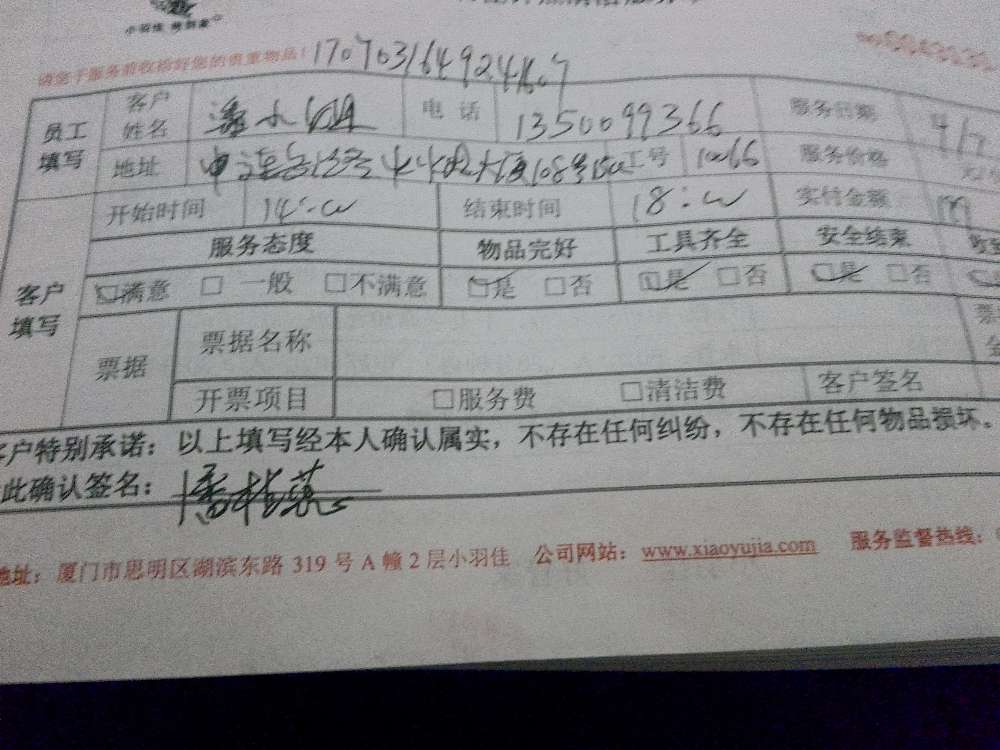 小羽佳
请您于服务前收拾好您的贵重物品！1707031649241607
员工填写 客户姓名 潘小姐 电话 1350099366 服务日期
地址 108号 工号 10066 服务价格
客户填写 开始时间 14:00 结束时间 18:00 实付金额
服务态度 物品完好 工具齐全 安全结束
☑满意 □ 一般 □不满意 ☑是 □否 ☑是 □否 ☑是 □否
票据 票据名称
开票项目 □服务费 □清洁费 客户签名
客户特别承诺：以上填写经本人确认属实，不存在任何纠纷，不存在任何物品损坏。
此确认签名：
地址：厦门市思明区湖滨东路 319 号 A 幢 2 层小羽佳 公司网站：www.xiaoyujia.com 服务监督热线：